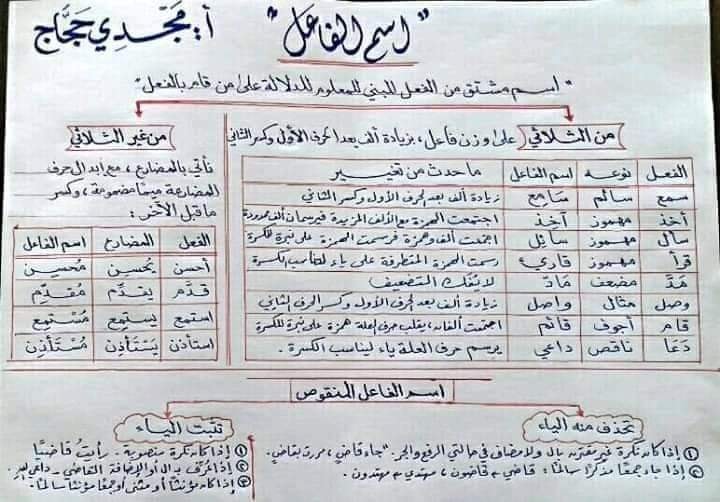 "اسم الفاعل"
أ. مجدي حجاج
"اسم مشتق من الفعل المبني للمعلوم للدلالة على من قام بالفعل"
من الثلاثي
على وزن فاعل، بزيادة ألف بعد الحرف الأول وكسر الثاني
الفعل نوعه اسم الفاعل ما حدث من تغيير
سمع سالم سَامع زيادة ألف بعد الحرف الأول وكسر الثاني
أخذ مهموز آخِذ اجتمعت الهمزة مع الألف المزيدة فيرسمان ألف ممدودة
سأل مهموز سائِل اجتمعت ألف وهمزة فرسمت الهمزة على نبرة للكسرة
قرأ مهموز قارئ رسمت الهمزة المتطرفة على ياء لتناسب الكسرة
مَدَّ مضعف مَادّ لا يُفك التضعيف
وصل مثال واصل زيادة ألف بعد الحرف الأول وكسر الحرف الثاني
قام أجوف قائم اجتمعت ألفان، يقلب حرف العلة همزة على نبرة للكسرة
دَعَا ناقص داعي يرسم حرف العلة ياء ليناسب الكسرة.
من غير الثلاثي
نأتي بالمضارع، مع ابدال حرف
المضارعة ميمًا مضمومة، وكسر
ما قبل الآخر:
الفعل المضارع اسم الفاعل
أحسن يُحسِن مُحسِن
قدَّم يقدِّم مُقدِّم
استمع يستمِع مُسْتمِع
استأذن يَسْتَأذِن مُسْتَأْذِن
اسم الفاعل المنقوص
تحذف منه الياء
١) إذا كانه نكرة غير مقترنه بال ولا مضاف في حالتي الرفع والجر. "جاء قاضٍ، مررت بقاضٍ.
٢) إذا جاء جمعًا مذكرًا سالمًا: قاضي ← قاضون، مهتدي ← مهتدون.
تثبت الياء
١) إذا كانه نكرة منصوبة. رأيت قاضيًا
٢) إذا عُرِّف بـ ال أو الإضافة القاضي - داعي
٣) إذا كانه مؤنثًا أو مثنى أو جمعًا مؤنثًا سالمًا.